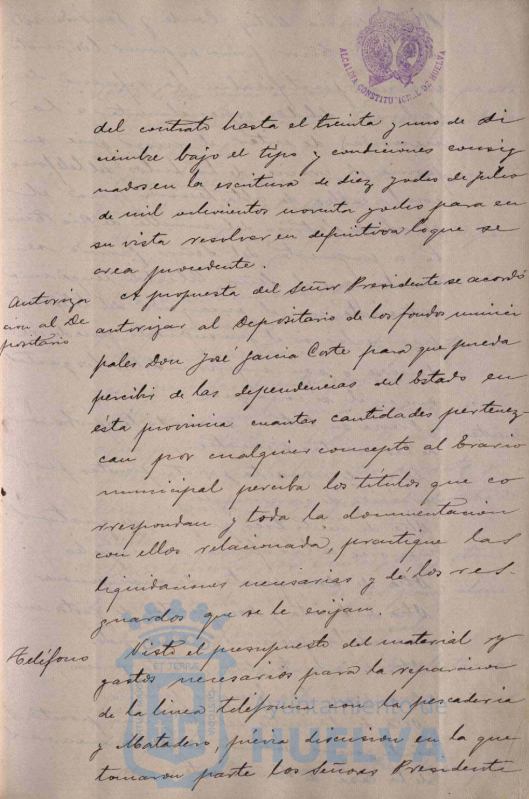 ALCALDIA CONSTITUCIONAL DE HUELVA
del contrato hasta el treinta y uno de Di
ciembre bajo el tipo y condiciones consig
nados en la escritura de diez y ocho de Julio
de mil ochocientos noventa y ocho para en
su vista resolver en definitiva lo que se
crea procedente.
Autoriza
cion al De
positario
A propuesta del Señor Presidente se acordó
autorizar al Depositario de los fondos munici
pales Don José Garcia Corte para que pueda
percibir de las dependencias del Estado en
ésta provincia cuantas cantidades pertenez-
can por cualquier concepto al Erario
municipal perciba los títulos que co
rrespondan y toda la documentacion
con ellos relacionada, practique las
liquidaciones necesarias y dé los res-
guardos que se le exijan.
Teléfono
Visto el presupuesto del material y
gastos necesarios para la reparacion
de la linea telefonica con la pescaderia
y Matadero, previa discusion en la que
tomaron parte los Señores Presidente
Ayuntamiento de
HUELVA